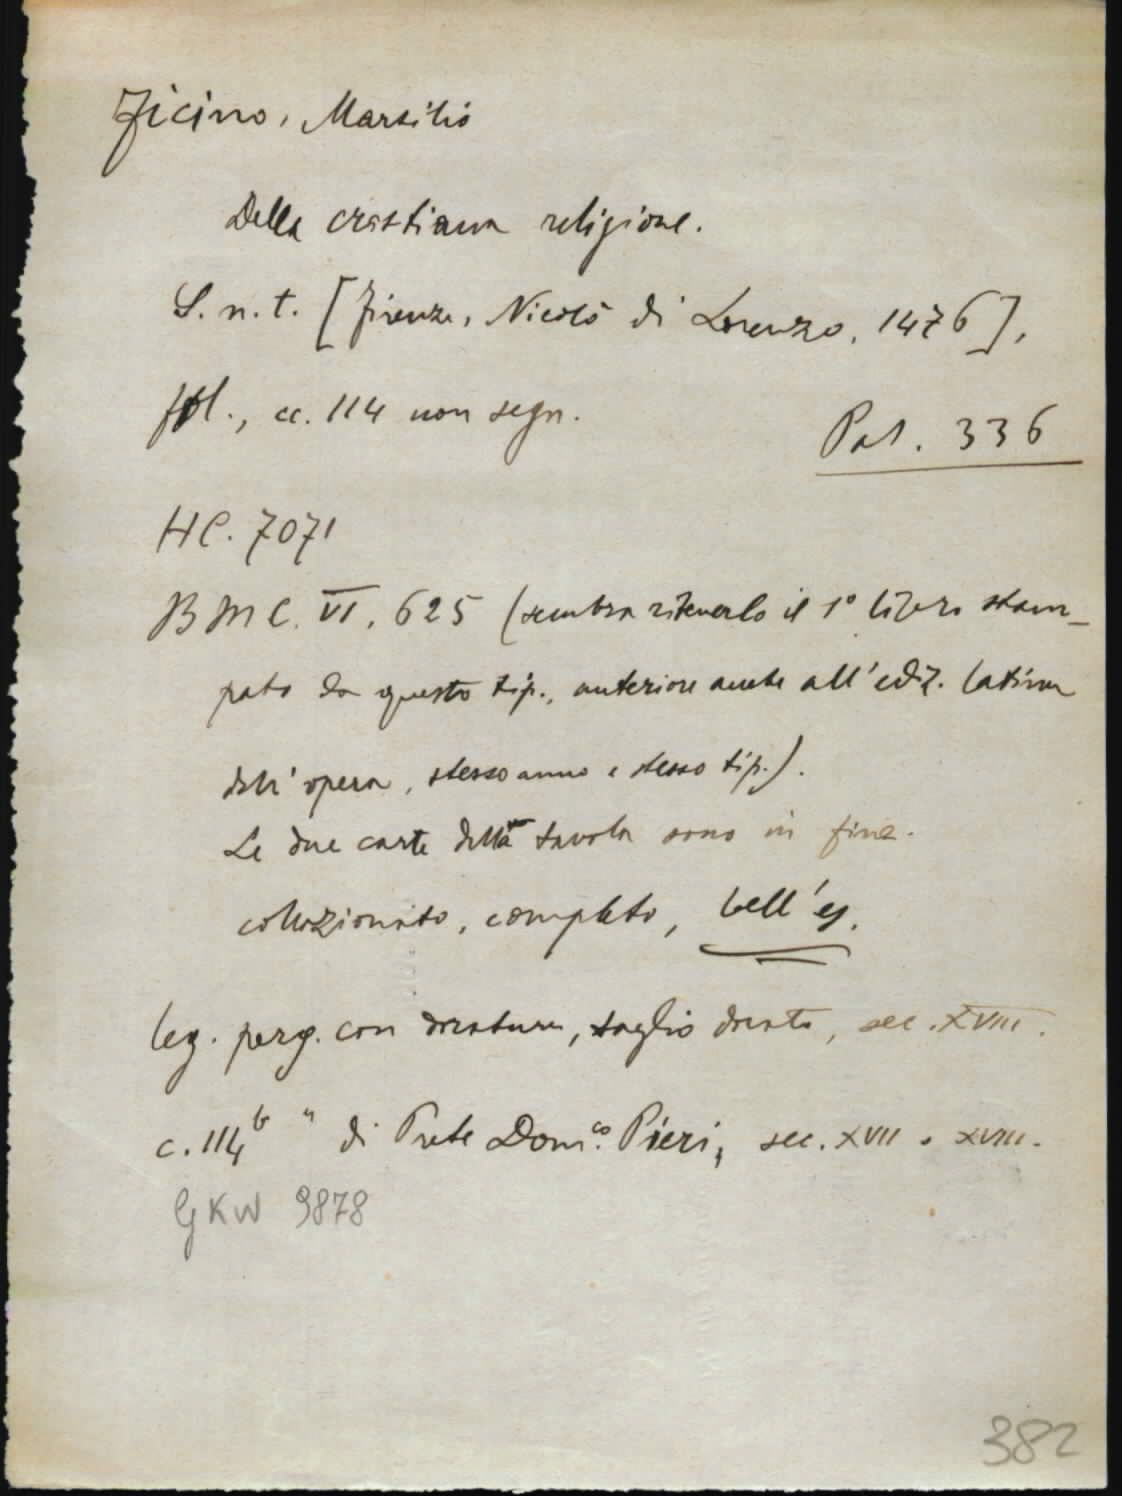 Ficino, Marsilio
Della cristiana religione.
S. n. t. [Firenze, Nicolò di Lorenzo, 1476],
fol., cc. 114 non segn.
Pal. 336
HC. 7071
BMC. VI, 625 (sembra ritenerlo il 1° libro stam-
pato da questo tip., anteriore anche all'ediz. latina
dell'opera, stesso anno e stesso tip.).
Le due carte della tavola sono in fine.
collazionato, completo, bell'es.
leg. perg. con dorature, taglio dorato, sec. XVIII.
c. 114b " di Prete Dom.co Pieri, sec. XVII o XVIII.
GKW 9878
382